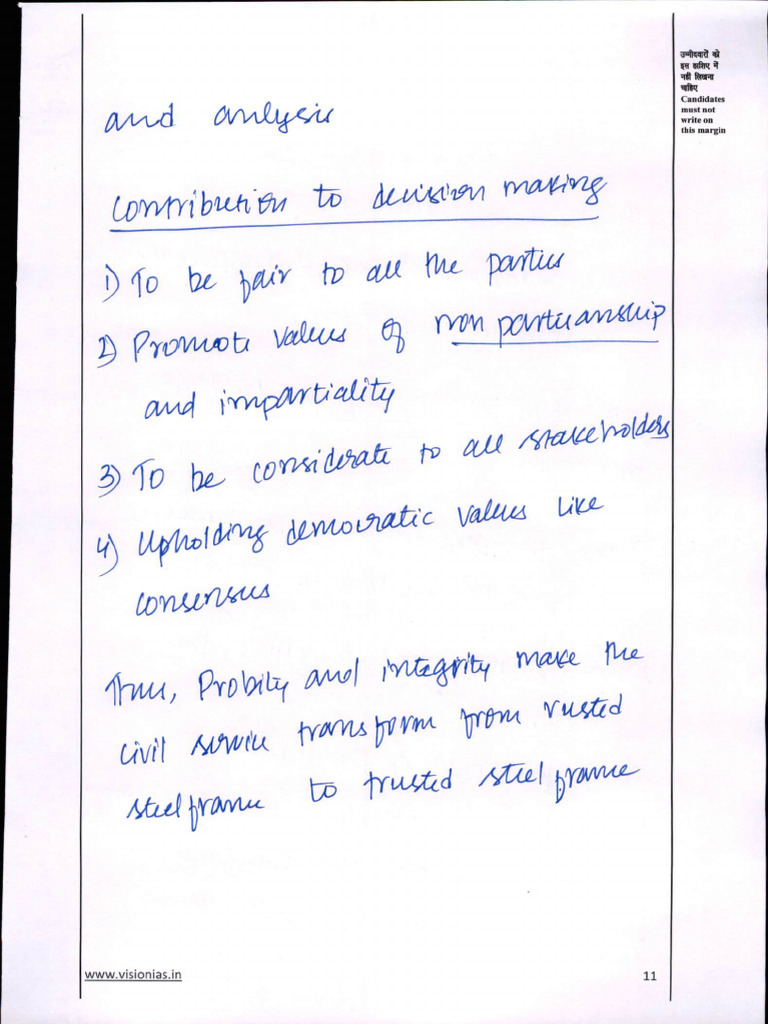 उम्मीदवारों को
इस हाशिए में
नहीं लिखना
चाहिए
Candidates
must not
write on
this margin
and anlysis
Contribution to decision making
1) To be fair to all the parties
2) Promote values of non partisanship
and impartiality
3) To be considerate to all stakeholders
4) Upholding democratic values like
consensus
Thus, Probity and integrity make the
civil service transform from rusted
steel frame to trusted steel frame
www.visionias.in
11